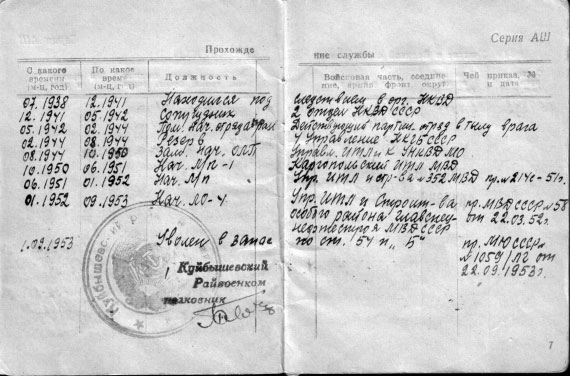 Серия АШ
Прохожде
ние службы
С какого времени (м-ц, год)
По какое время (м-ц, г д)
Должность
Войсковая часть, соединение, армия фронт, округ
Чей приказ, № и дата
07.1938 12.1941 Находился под следствием в орг. НКВД
12.1941 05.1942 Сотрудник 2 отдел НКВД СССР
05.1942 02.1944 Действующий партиз. отряд в тылу врага
02.1944 08.1944 Резерв Управление НКГБ СССР
08.1944 10.1950 Зам. Нач. ОЛП Управл. ИТЛ и К УНКВД МО
10.1950 06.1951 Нач. МП-1 Каргопольский ИТЛ МВД
06.1951 01.1952 Нач. МП Упр. ИТЛ и стр-ва №352 МВД пр. №214с-51г.
01.1952 09.1953 Нач. ЛО-4 Упр. ИТЛ и Строит-ва пр. МВД СССР №58
особого района Главспец от 22.03.52г.
нефтестроя МВД СССР
1.09.1953 Уволен в запас по ст. 54 п. „Б" пр. МЮ СССР
№1059/ЛГ от
22.09.1953г.
Куйбышевский
Райвоенком
полковник
7